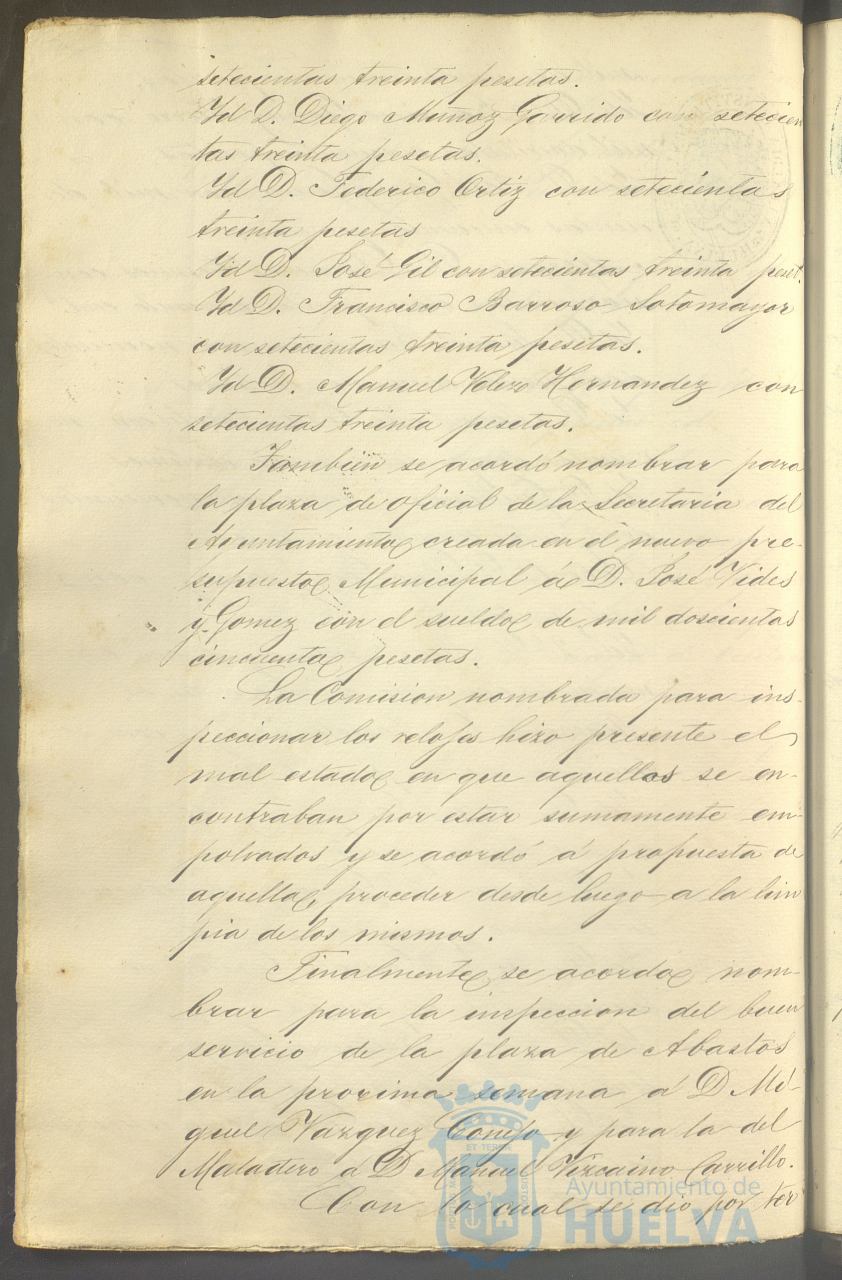 setecientas treinta pesetas.
Yd D. Diego Muñoz Garrido con setecien
tas treinta pesetas.
Yd D. Federico Ortiz con setecientas
treinta pesetas
Yd D. José Gil con setecientas treinta peset.
Yd D. Francisco Barroso Sotomayor
con setecientas treinta pesetas.
Yd D. Manuel Velezo Hernandez con
setecientas treinta pesetas.
Tambien se acordó nombrar para
la plaza de oficial de la Secretaria del
Ayuntamiento creada en el nuevo pre-
supuesto Municipal á D. José Vides
y Gomez con el sueldo de mil doscientas
cincuenta pesetas.
La Comision nombrada para ins-
peccionar los relojes hizo presente el
mal estado en que aquellos se en-
contraban por estar sumamente em-
polvados y se acordó á propuesta de
aquella, proceder desde luego a la lim
pia de los mismos.
Finalmente se acordo nom-
brar para la inspeccion del buen
servicio de la plaza de Abastos
en la proxima semana a D Mi-
guel Vazquez Conejo y para la del
Matadero a D Manuel Vizcaino Carrillo.
Con lo cual se dio por ter
Ayuntamiento de
HUELVA